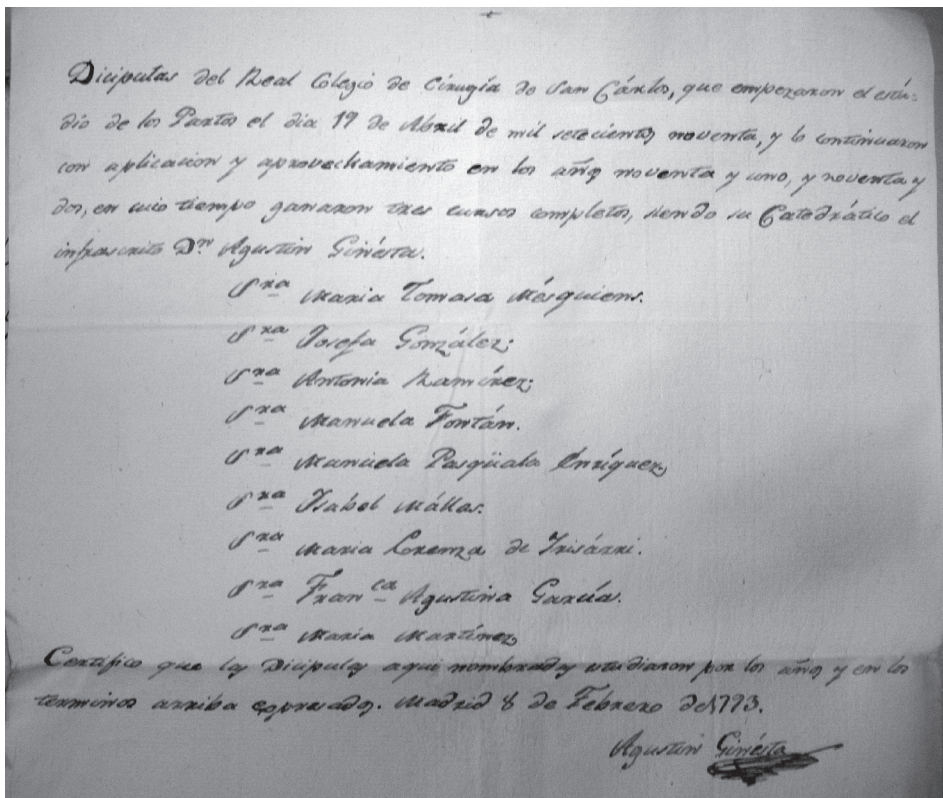 Diciputas del Real Colegio de Cirugía de San Cárlos, que empezaron el estú-
dio de los Partos el dia 19 de Abril de mil setecientos noventa, y lo continuaron
con aplicacion y aprovechamiento en los años noventa y uno, y noventa y
dos, en cuio tiempo ganaron tres cursos completos, siendo su Catedrático el
infrascrito Dn Agustin Ginésta.
Sra Maria Tomasa Mésquiens.
Sra Josefa González.
Sra Antonia Ramírez.
Sra Manuela Fontán.
Sra Manuela Pasqüala Enríquez
Sra Isabel Mállas.
Sra Maria Lorenza de Irisárri.
Sra Franca Agustina García.
Sra Maria Martínez
Certifico que las Dicipulas aqui nombradas estudiaron por los años y en los
terminos arriba expresados. Madrid 8 de Febrero de 1793.
Agustin Ginésta